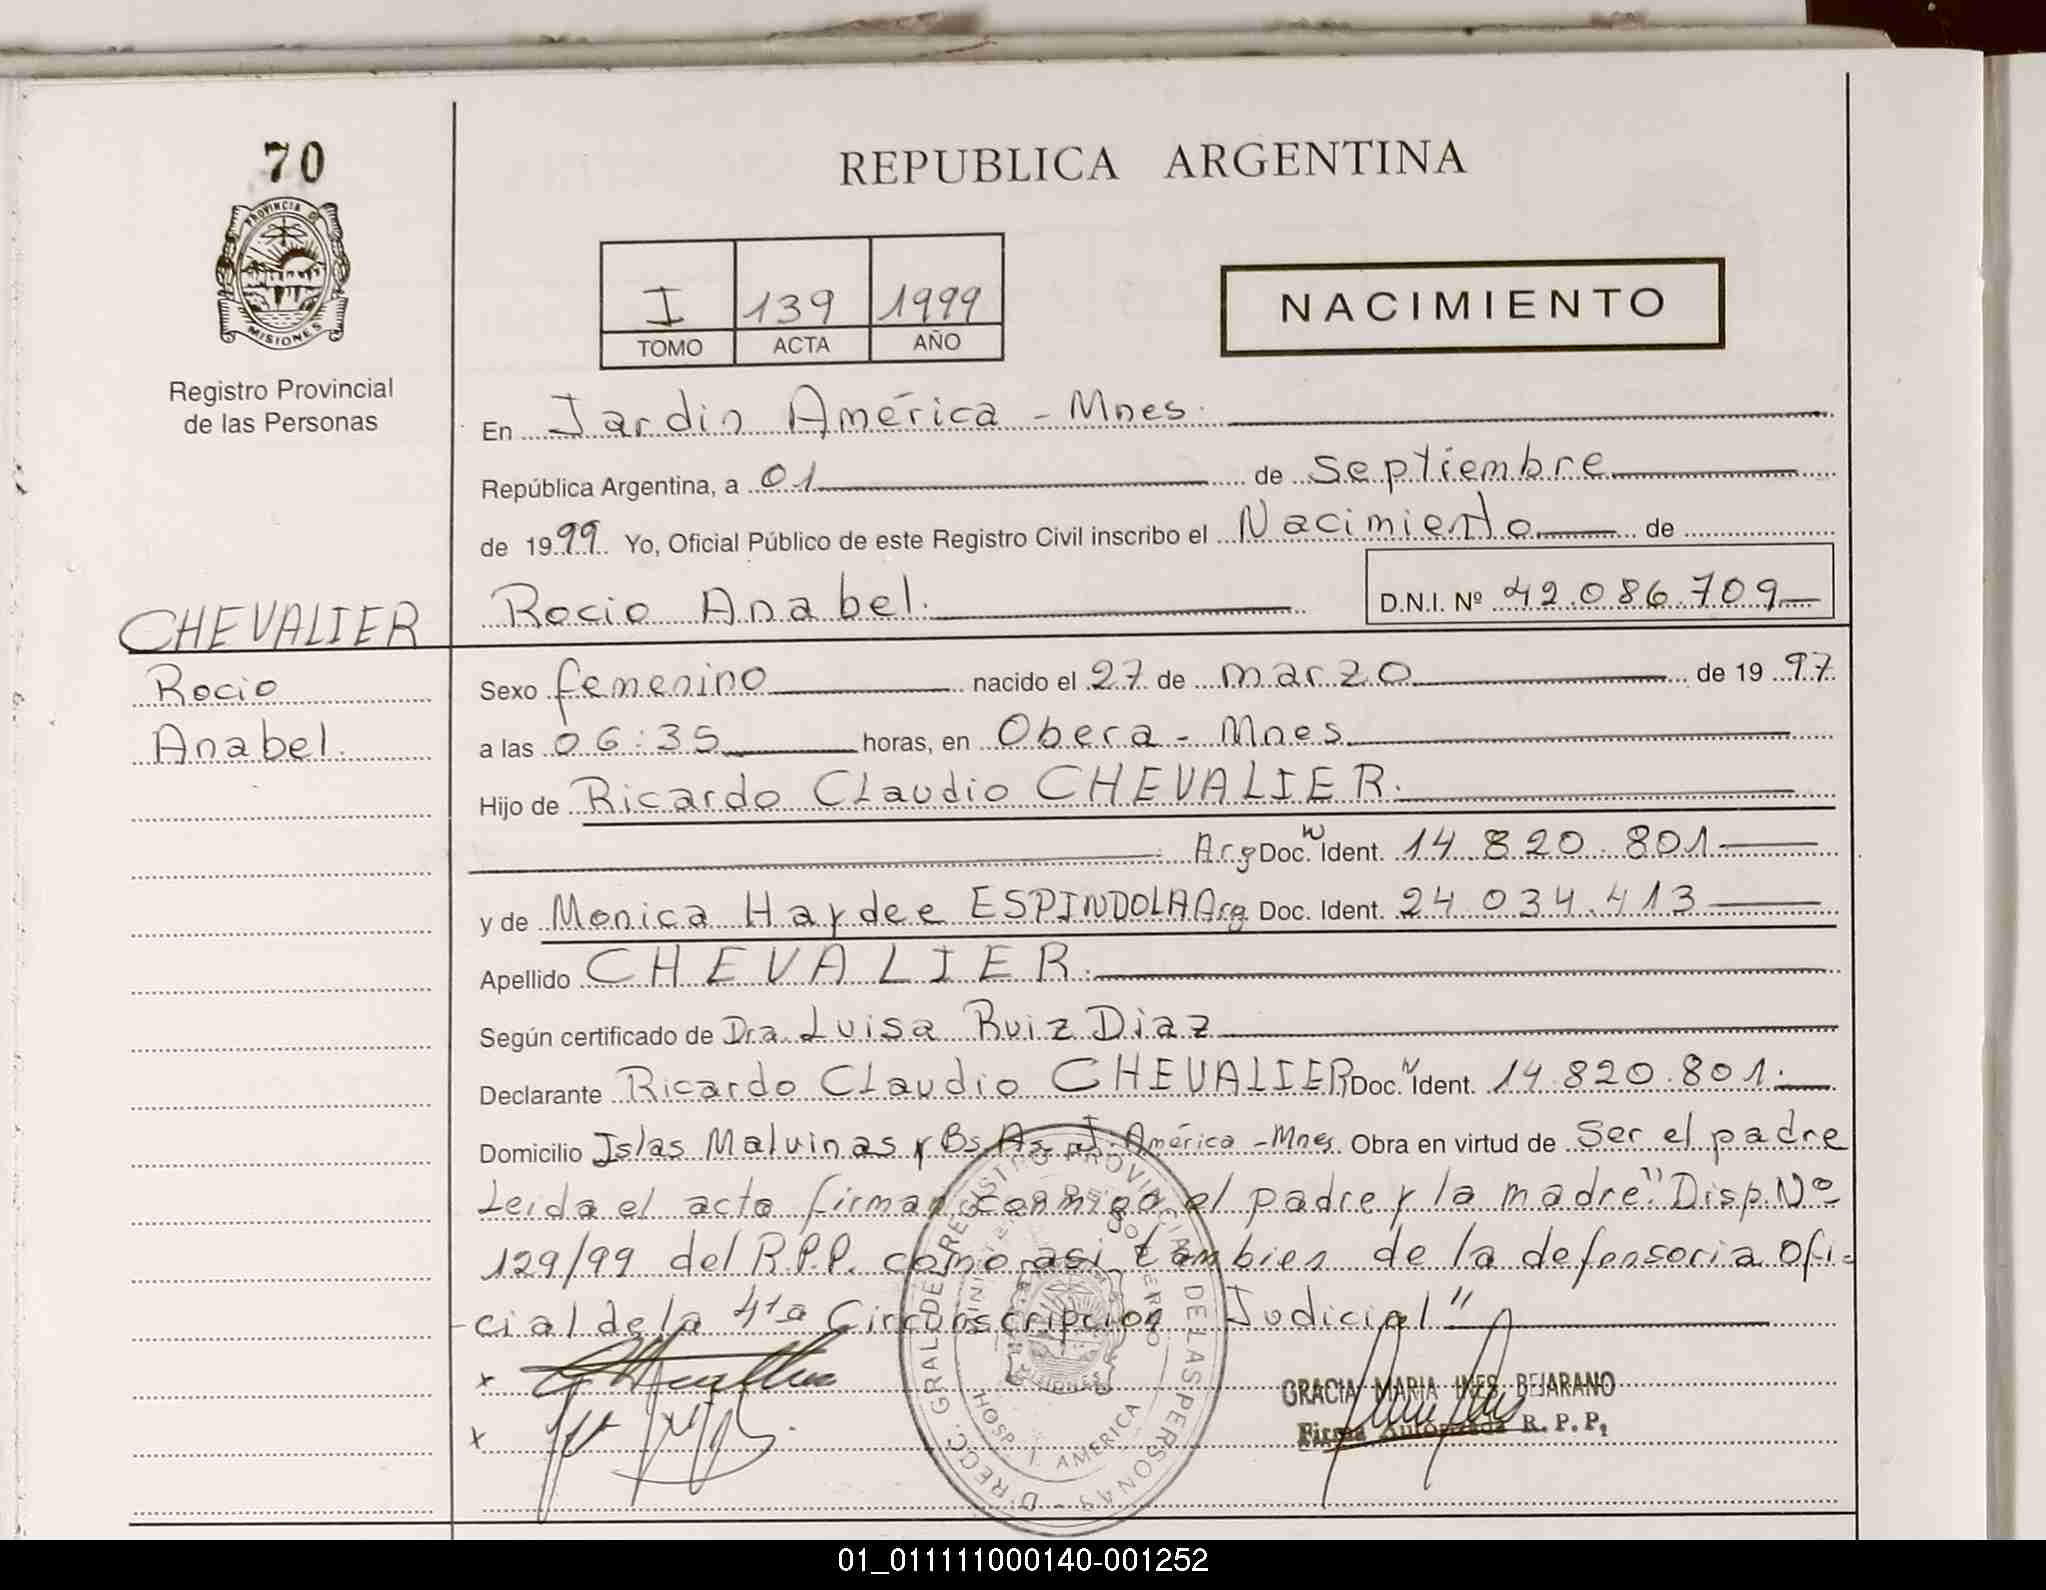 70
PROVINCIA DE
MISIONES
Registro Provincial
de las Personas
REPUBLICA ARGENTINA
I 139 1999
TOMO ACTA AÑO
NACIMIENTO
En Jardin América - Mnes.
República Argentina, a 01 de septiembre
de 1999 Yo, Oficial Público de este Registro Civil inscribo el Nacimiento de
Rocio Anabel. D.N.I. Nº 42.086.709
CHEVALIER
Rocio
Anabel.
Sexo femenino nacido el 27 de marzo de 1997
a las 06:35 horas, en Obera - Mnes
Hijo de Ricardo Claudio CHEVALIER.
Arg Doc. Ident. 14.820.801
y de Monica Haydee ESPINDOLA Arg Doc. Ident. 24.034.413
Apellido CHEVALIER.
Según certificado de Dra. Luisa Ruiz Diaz
Declarante Ricardo Claudio CHEVALIER Doc. Ident. 14.820.801.
Domicilio Islas Malvinas y Bs. As. J. América - Mnes. Obra en virtud de Ser el padre
Leida el acta firman conmigo el padre y la madre." Disp. Nº
129/99 del R.P.P. como asi tambien de la defensoria ofi-
cial de la 4ta Circunscripcion Judicial"
x
x
DIRECC. GRAL DE REGISTRO PROVINCIAL DE LAS PERSONAS
MINISTERIO DE GOBIERNO
MISIONES
HOSP. J. AMERICA
GRACIA MARIA INES BEJARANO
Firma Autorizada R. P. P.
01_011111000140-001252